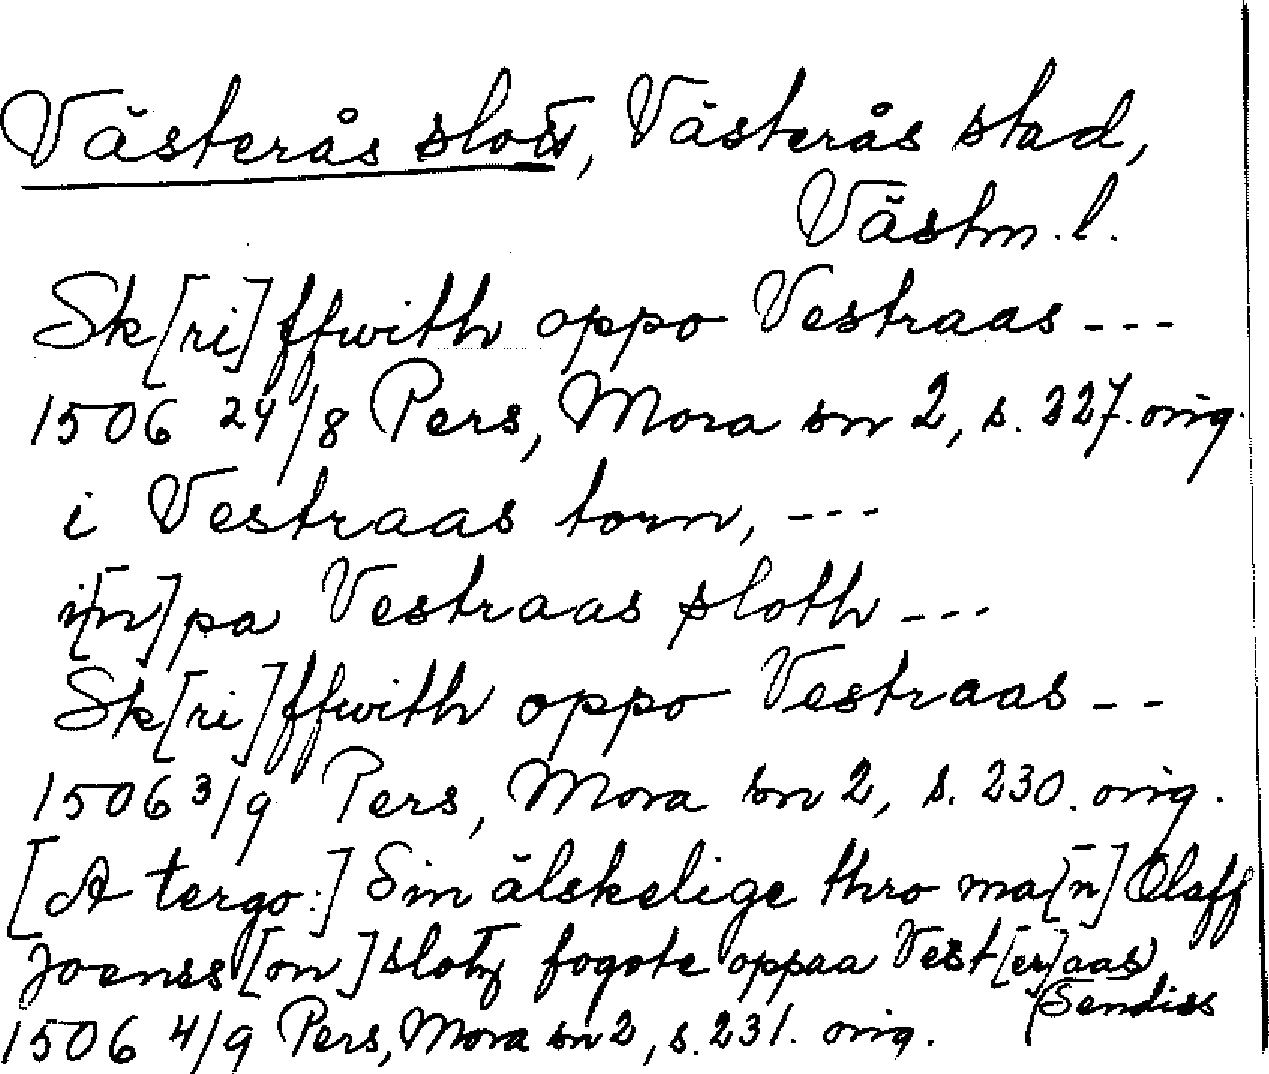 Västerås slott, Västerås stad,
Västm. l.
Sk[ri]ffwith oppo Vestraas ---
1506 24/8 Pers, Mora sn 2, s. 227. orig.
i Vestraas torn, ---
i[n]pa Vestraas sloth ---
Sk[ri]ffwith oppo Vestraas --
1506 3/9 Pers, Mora sn 2, s. 230. orig.
[A tergo:] Sin älskelige thro ma[n] Olaff
Joenss[on] slotz fogote oppaa Vest[er]aas
Sendiss
1506 4/9 Pers, Mora sn 2, s. 231. orig.